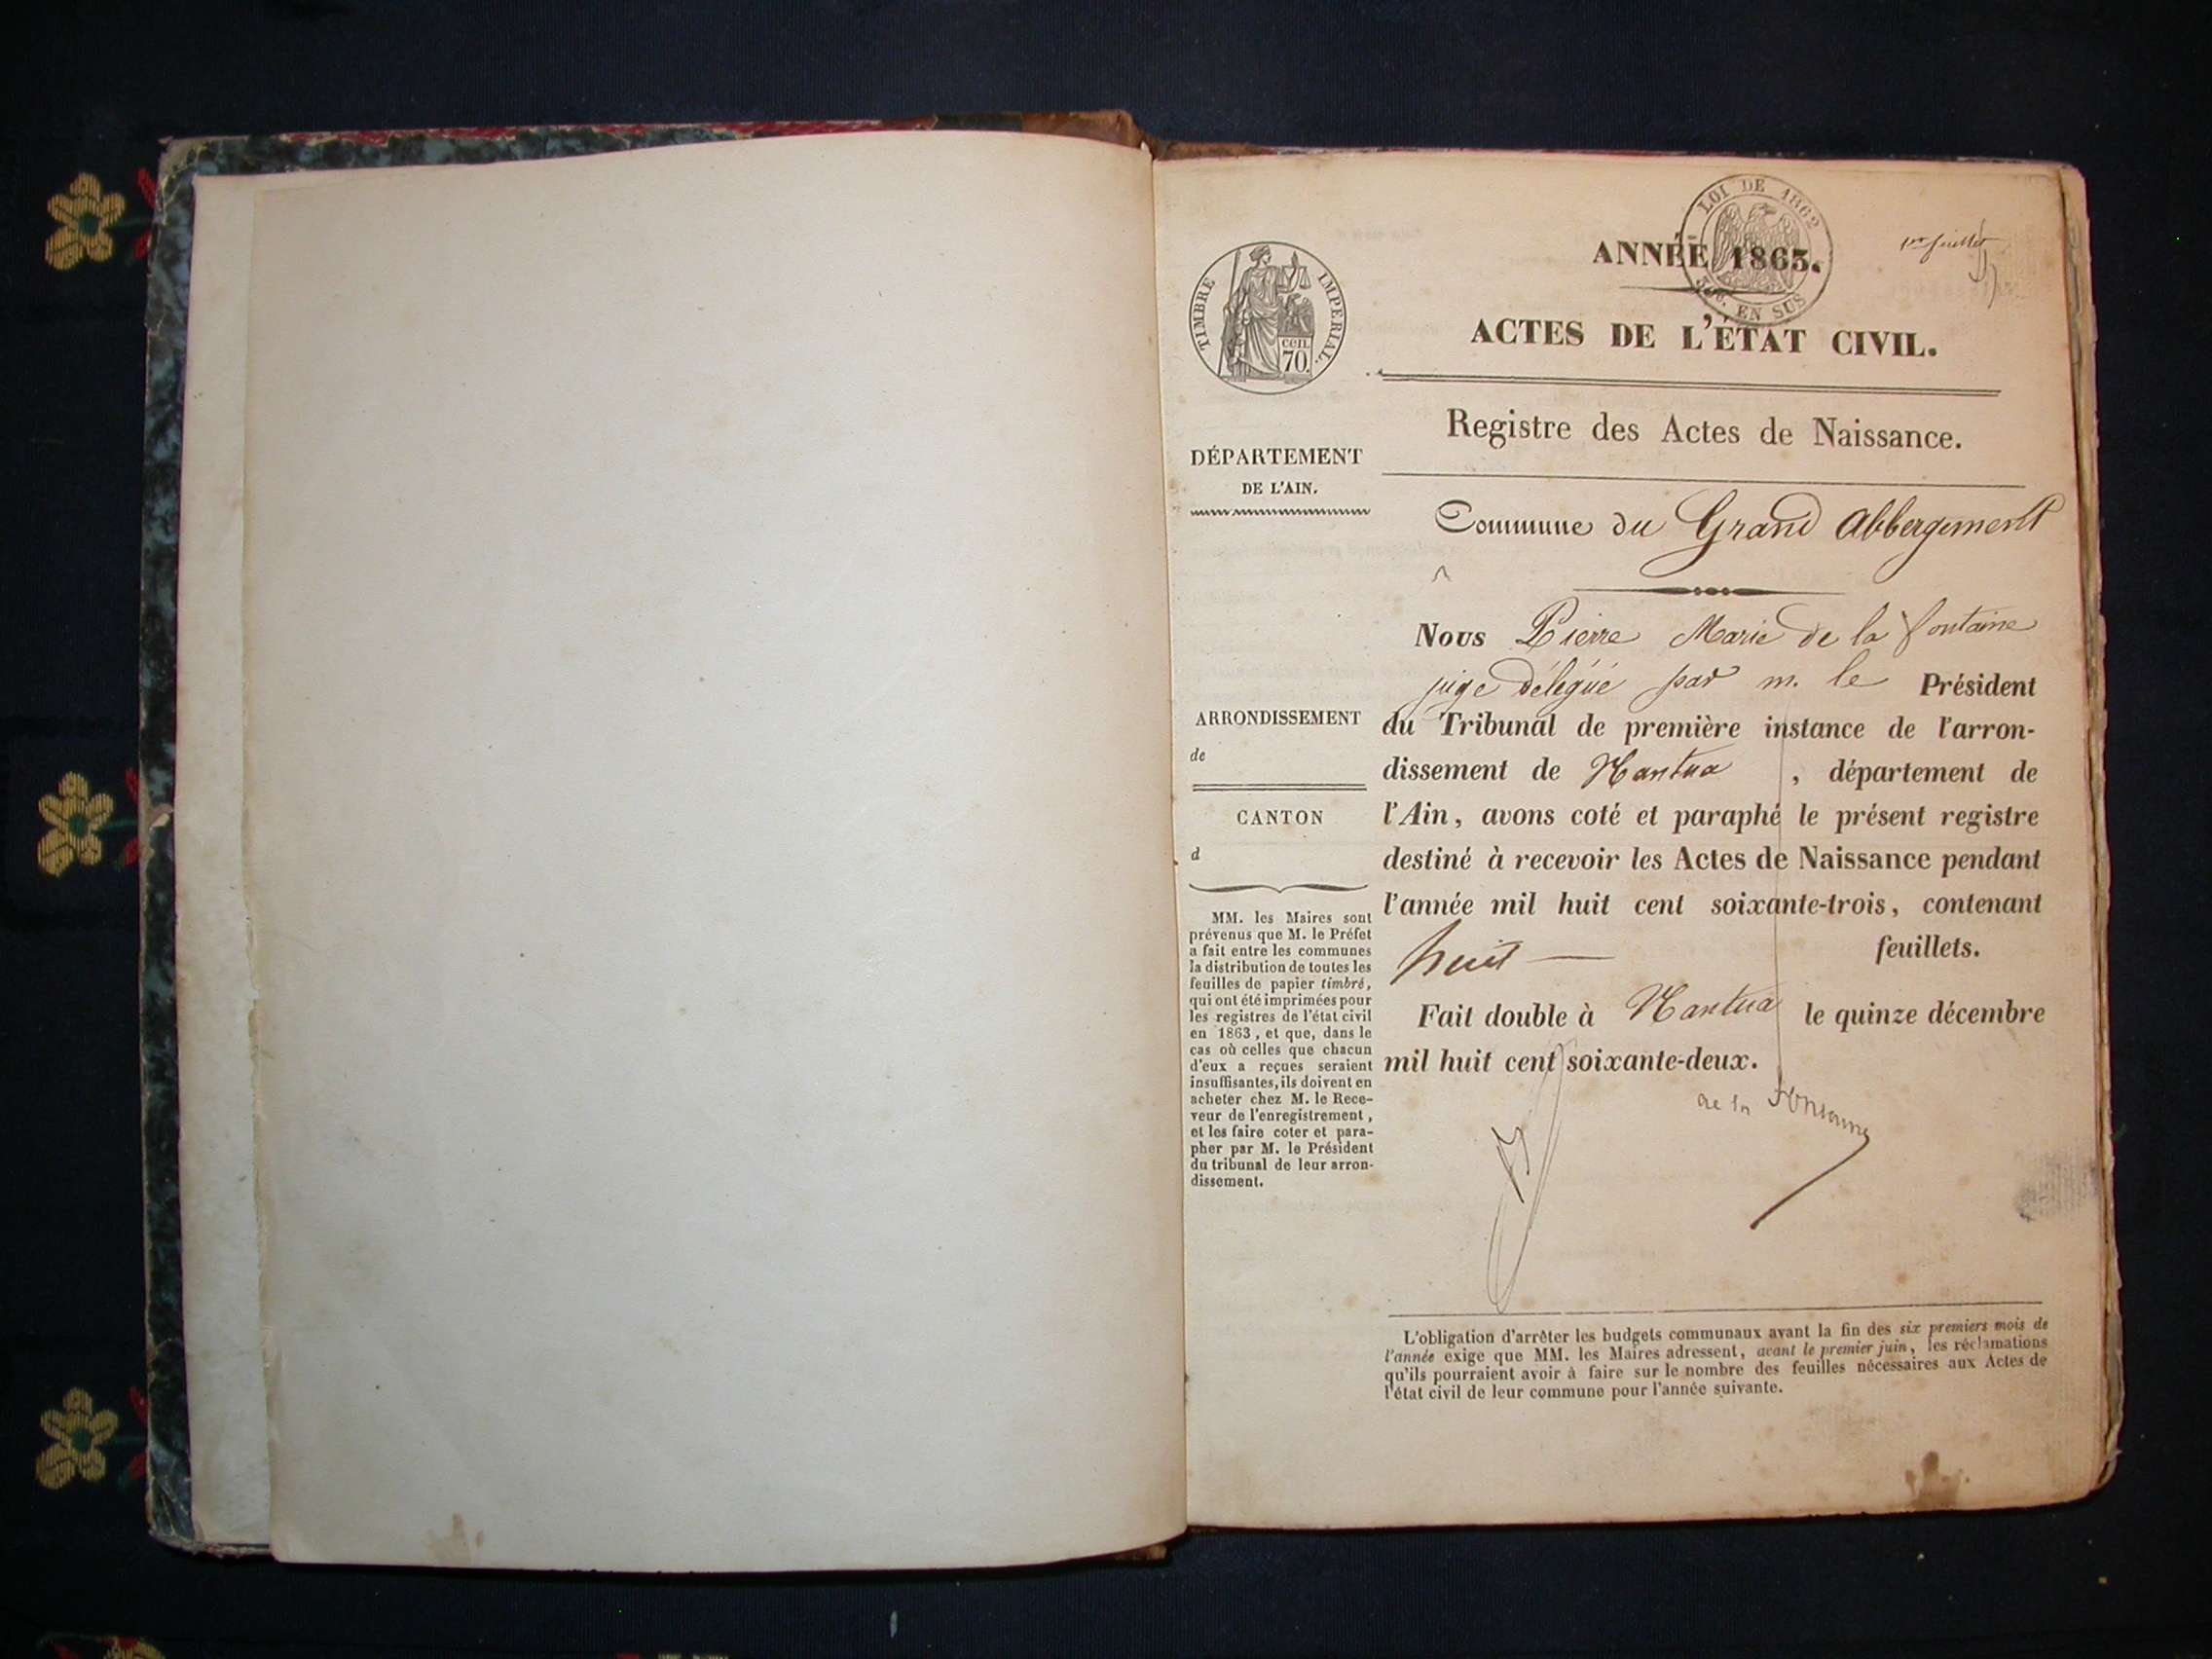 TIMBRE IMPÉRIAL.
cen.
70.
DÉPARTEMENT
DE L'AIN.
ARRONDISSEMENT
de
CANTON
d
MM. les Maires sont
prévenus que M. le Préfet
a fait entre les communes
la distribution de toutes les
feuilles de papier timbré,
qui ont été imprimées pour
les registres de l'état civil
en 1863, et que, dans le
cas où celles que chacun
d'eux a reçues seraient
insuffisantes, ils doivent en
acheter chez M. le Rece-
veur de l'enregistrement,
et les faire coter et para-
pher par M. le Président
du tribunal de leur arron-
dissement.
LOI DE 1862
EN SUS
1er feuillet
ANNÉE 1863.
ACTES DE L'ÉTAT CIVIL.
Registre des Actes de Naissance.
Commune du Grand Abbergement
Nous Pierre Marie de la fontaine
juge délégué par m. le Président
du Tribunal de première instance de l'arron-
dissement de Nantua , département de
l'Ain, avons coté et paraphé le présent registre
destiné à recevoir les Actes de Naissance pendant
l'année mil huit cent soixante-trois, contenant
huit — feuillets.
Fait double à Nantua le quinze décembre
mil huit cent soixante-deux.
de la Fontaine
L'obligation d'arrêter les budgets communaux avant la fin des six premiers mois de
l'année exige que MM. les Maires adressent, avant le premier juin, les réclamations
qu'ils pourraient avoir à faire sur le nombre des feuilles nécessaires aux Actes de
l'état civil de leur commune pour l'année suivante.